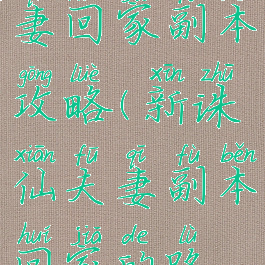 妻回家副本
gōng lüè xīn zhū
攻略(新诛
xiān fū qī fù běn
仙夫妻副本
huí jiā de lù
回家的路